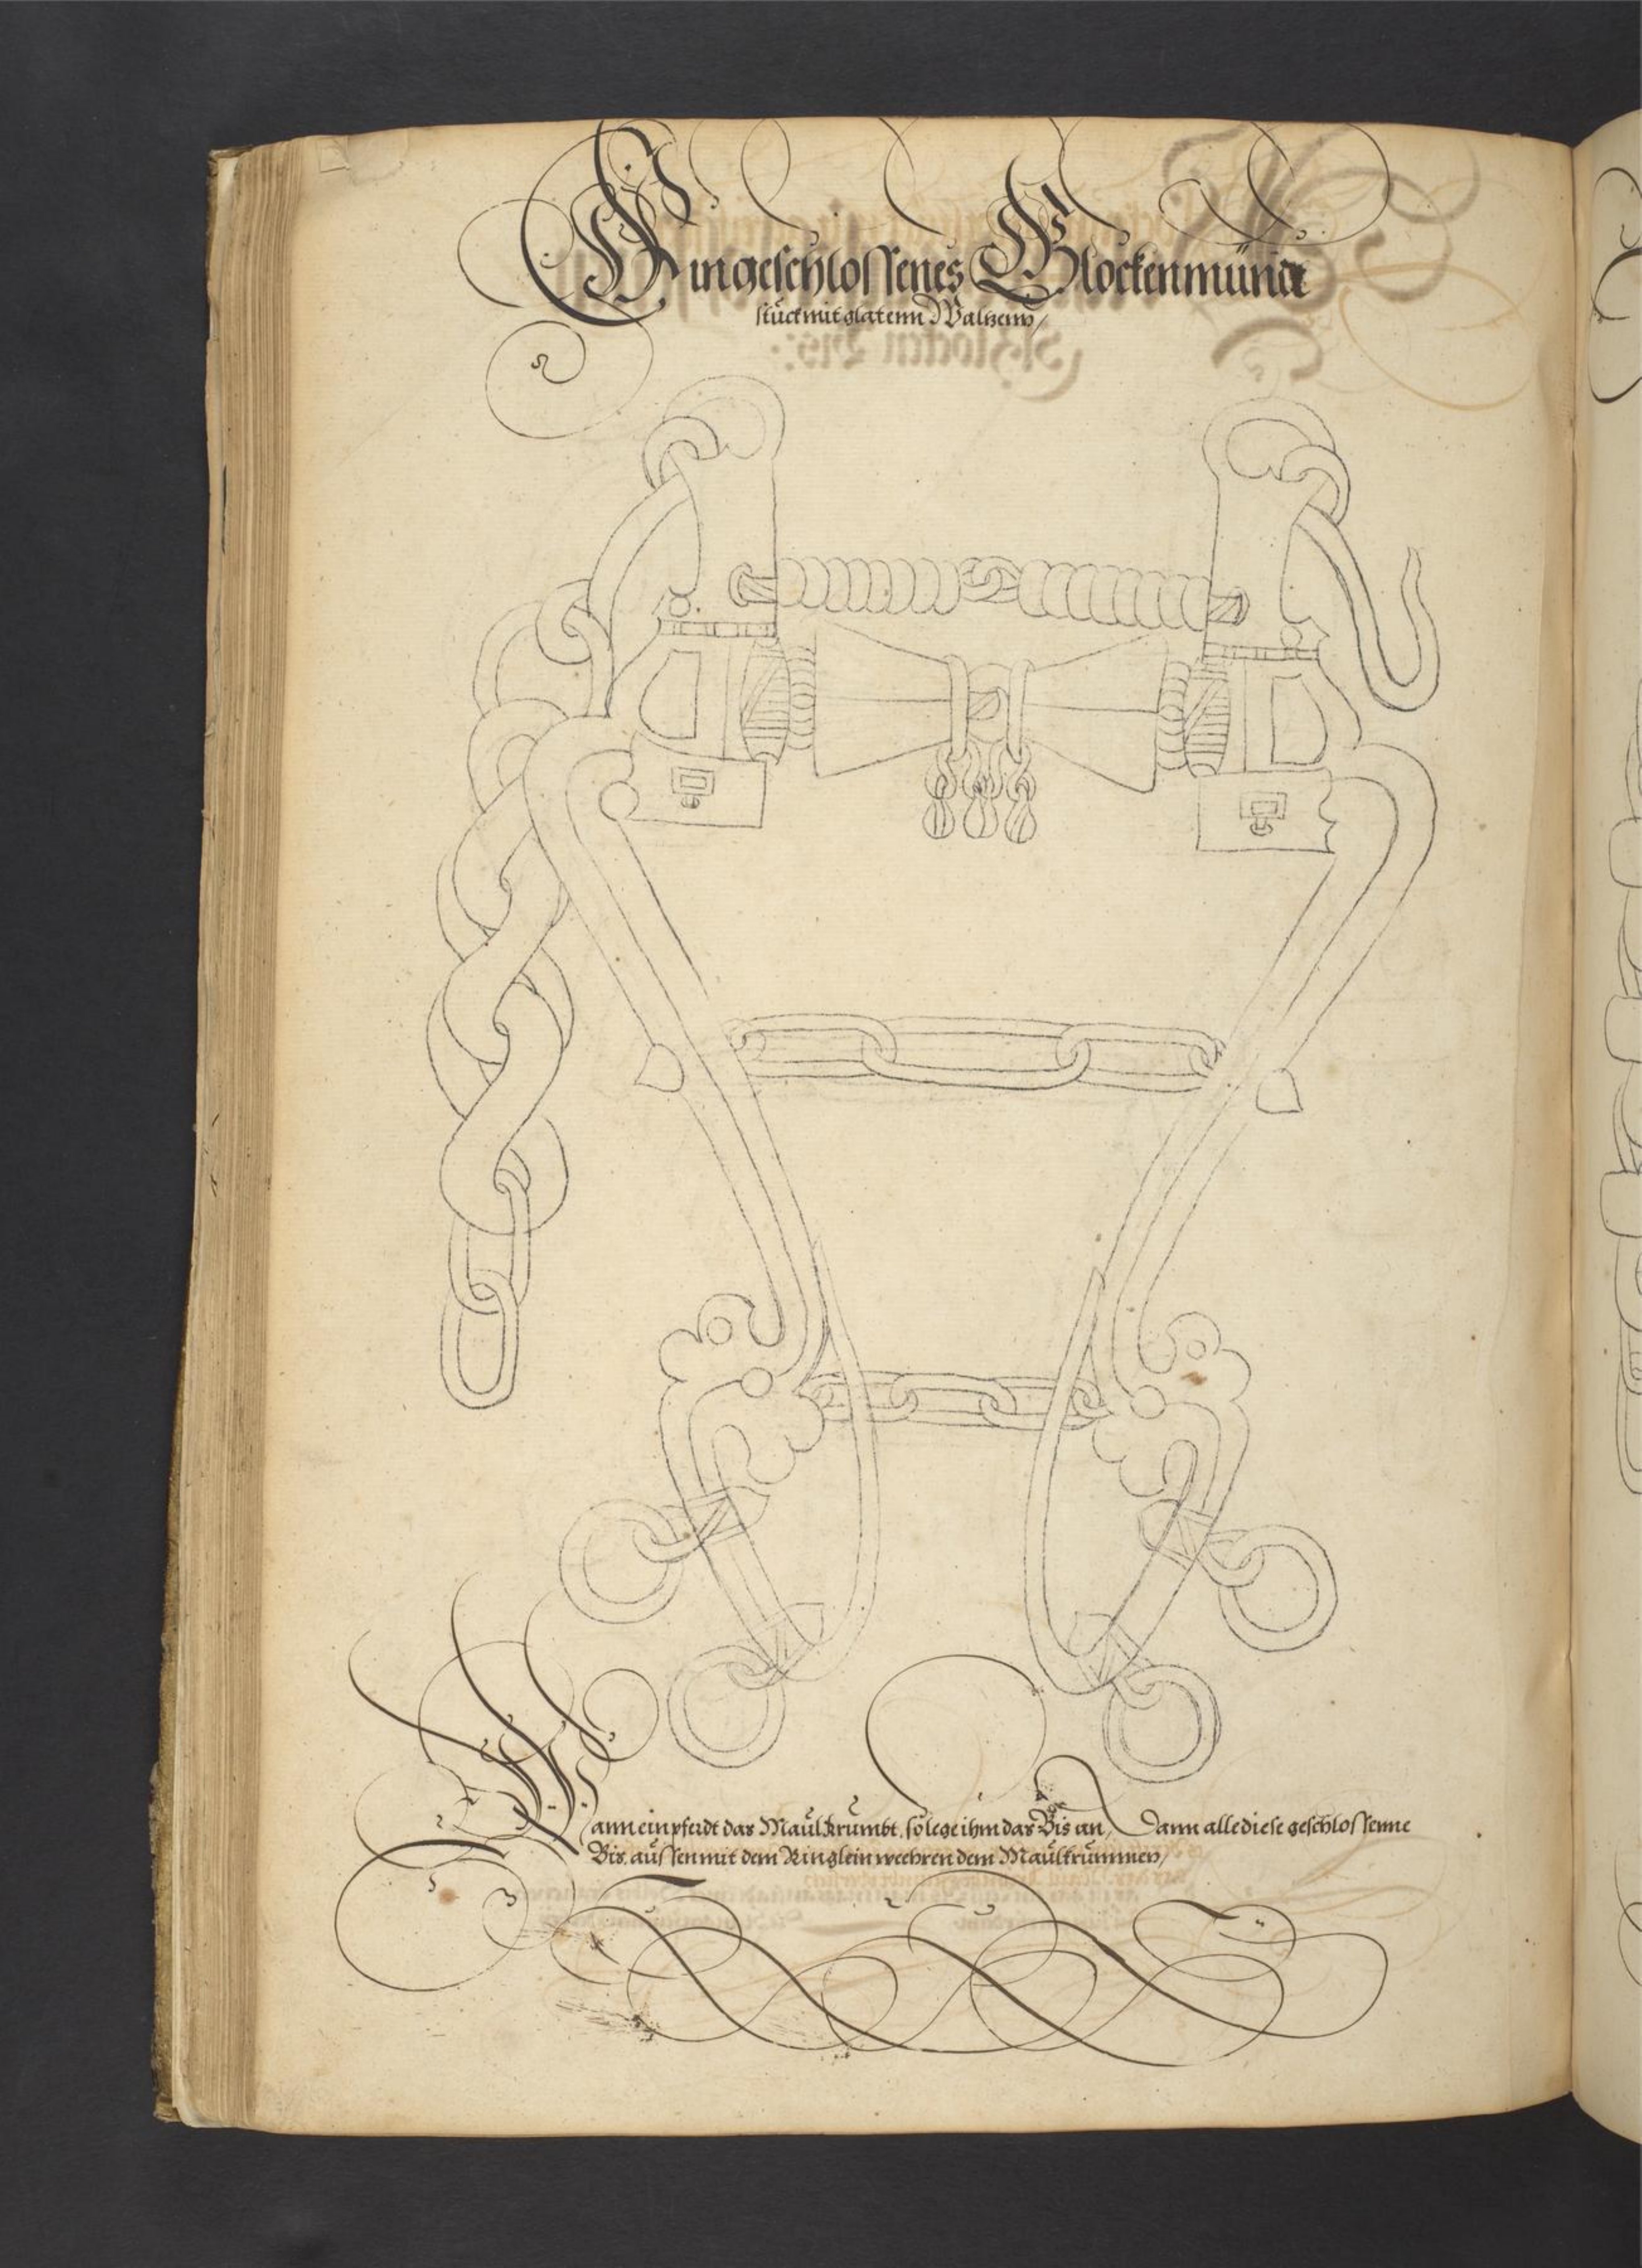 Ein geschlossenes Glockenmündt
stück mit glatenn Waltzenn /
Wann ein pferdt das Maül krümbt, so lege ihm das Bis an, Dann alle diese geschlossenne
Bis aüssen mit dem Ringlein weehren dem Maülkrümmen /